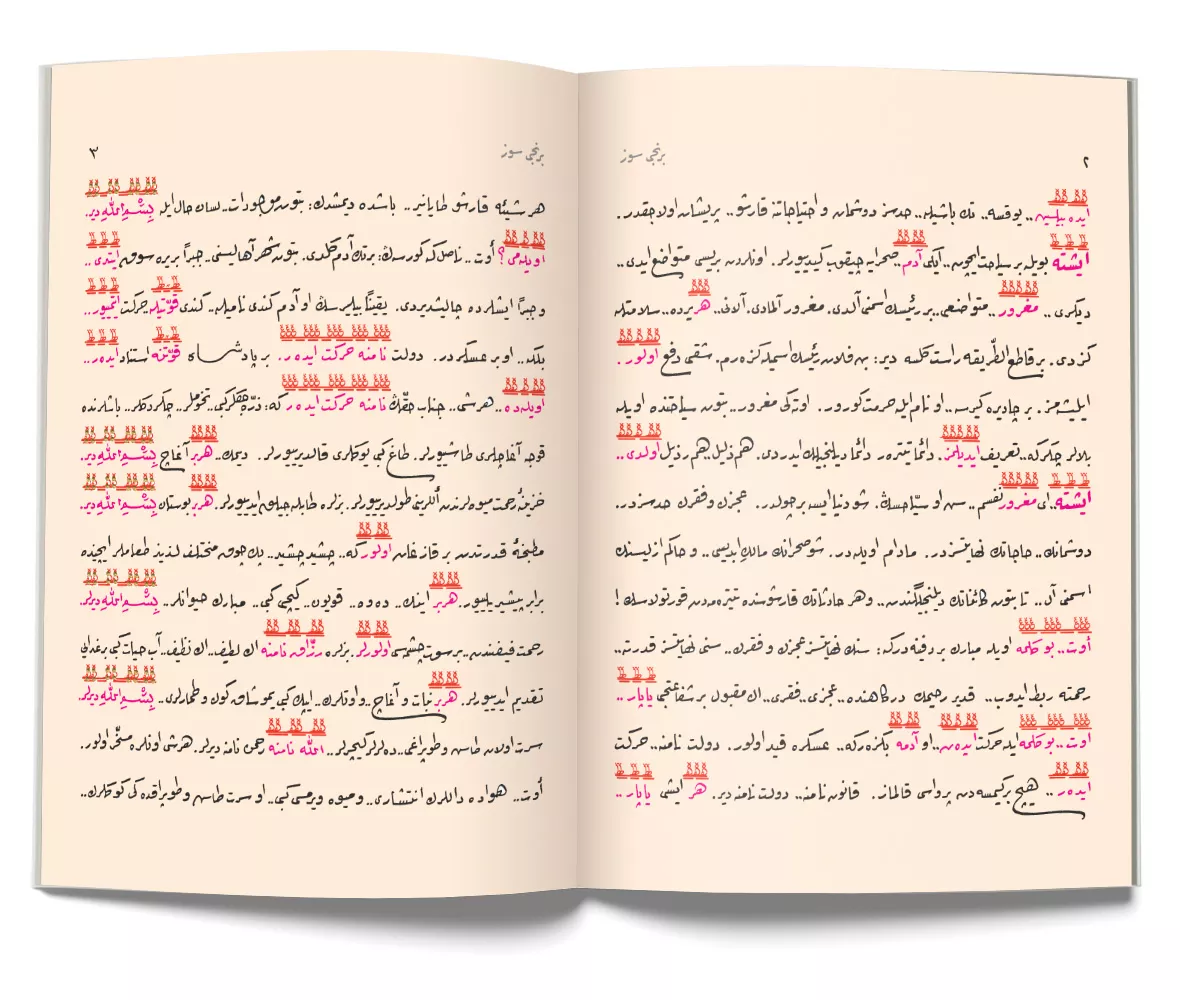 برنجی سوز ٢
ایده بیلسین.. یوقسه.. تك باشیله.. حدسز دوشمان و احتیاجاتنه قارشو.. پریشان اولاجقدر.
ایشته بویله بر سیاحت ایچون.. ایكی آدم.. صحرایه چیقوب كیدییورلر. اونلردن بریسی متواضع ایدی..
دیكری.. مغرور.. متواضعی.. بر رئیسك اسمنی آلدی. مغرور آلمادی. آلانی.. هر یرده.. سلامتله
كزدی. بر قاطع الطّریقه راست كلسه دیر: بن فلان رئیسك اسمیله كزه رم. شقی دفع اولور.
ایلیشه مز. بر چادیره كیرسه.. او نام ایله حرمت كورور. اوته كی مغرور.. بتون سیاحتنده اویله
بلالر چكر كه.. تعریف ایدیلمز. دائما تیتره ر دائما دیلنجیلك ایدردی. هم ذلیل.. هم رذیل اولدی..
ایشته.. ای مغرور نفسم.. سن او سیّاحسك. شو دنیا ایسه بر چولدر. عجزك و فقرك حدسزدر.
دوشمانك.. حاجاتك نهایتسزدر. مادام اویله در. شو صحرانك مالك ابدیسی.. و حاكم ازلیسنك
اسمنی آل.. تا بتون كائناتك دیلنجیلگندن.. و هر حادثاتك قارشوسنده تیتره مه دن قورتولاسك!
أوت.. بو كلمه اویله مبارك بر دفینه در كه: سنك نهایتسز عجزك و فقرك.. سنی نهایتسز قدرته..
رحمته ربط ایدوب.. قدیر رحیمك دركاهنده.. عجزی. فقری.. اك مقبول بر شفاعتجی یاپار..
أوت.. بو كلمه ایله حركت ایده ن.. او آدمه بكزه ر كه.. عسكره قید اولور. دولت نامنه.. حركت
ایده ر.. هیچ بر كیمسه دن پرواسی قالماز. قانون نامنه.. دولت نامنه دیر. هر ایشی یاپار..
برنجی سوز ٣
هر شیئه قارشو طایانیر.. باشده دیمشدك: بتون موجودات.. لسان حال ایله بِسْمِ اللّٰهِ دیر.
اویله می؟ أوت.. ناصل كه كورسه ك: بر تك آدم كلدی. بتون شهر آهالیسنی. جبرًا بر یره سوق ایتدی..
و جبرًا ایشلرده چالیشدیردی. یقینًا بیلیرسك او آدم كندی نامیله.. كندی قوّتیله حركت ایتمیور..
بلكه.. او بر عسكردر. دولت نامنه حركت ایده ر. بر پادشاه قوّتنه استناد ایده ر..
اویله ده.. هر شی.. جناب حقّك نامنه حركت ایده ر كه: ذرّه جكلر كبی.. تخوملر.. چكردكلر.. باشلرنده
قوجه آغاجلری طاشییورلر. طاغ كبی یوكلری قالدیرییورلر. دیمك.. هر بر آغاج بِسْمِ اللّٰهِ دیر.
خزینۀ رحمت میوه لرندن اللرینی طولدیرییورلر. بزلره طابله جیلق ایدییورلر. هر بر بوستان بِسْمِ اللّٰهِ دیر.
مطبخۀ قدرتدن بر قازغان اولور كه.. چشید چشید.. پك چوق مختلف لذیذ طعاملر ایچنده
برابر پیشیریلییور. هر بر اینك.. ده وه.. قویون.. كیچی كبی.. مبارك حیوانلر.. بِسْمِ اللّٰهِ دیرلر.
رحمت فیضندن.. بر سوت چشمه سی اولورلر. بزلره رزّاق نامنه اك لطیف.. اك نظیف.. آب حیات كبی بر غدایی
تقدیم ایدییورلر. هر بر نبات و آغاج.. و اوتلرك.. ایپك كبی یموشاق كوك و طمارلری.. بِسْمِ اللّٰهِ دیرلر.
سرت اولان طاش و طوپراغی.. ده لر كیچرلر.. اللّٰه نامنه رحمن نامنه دیرلر. هر شی اونلره مسخّر اولور.
أوت.. هواده داللرك انتشاری.. و میوه ویرمه سی كبی.. او سرت طاش و طوپراقده كی كوكلرك..